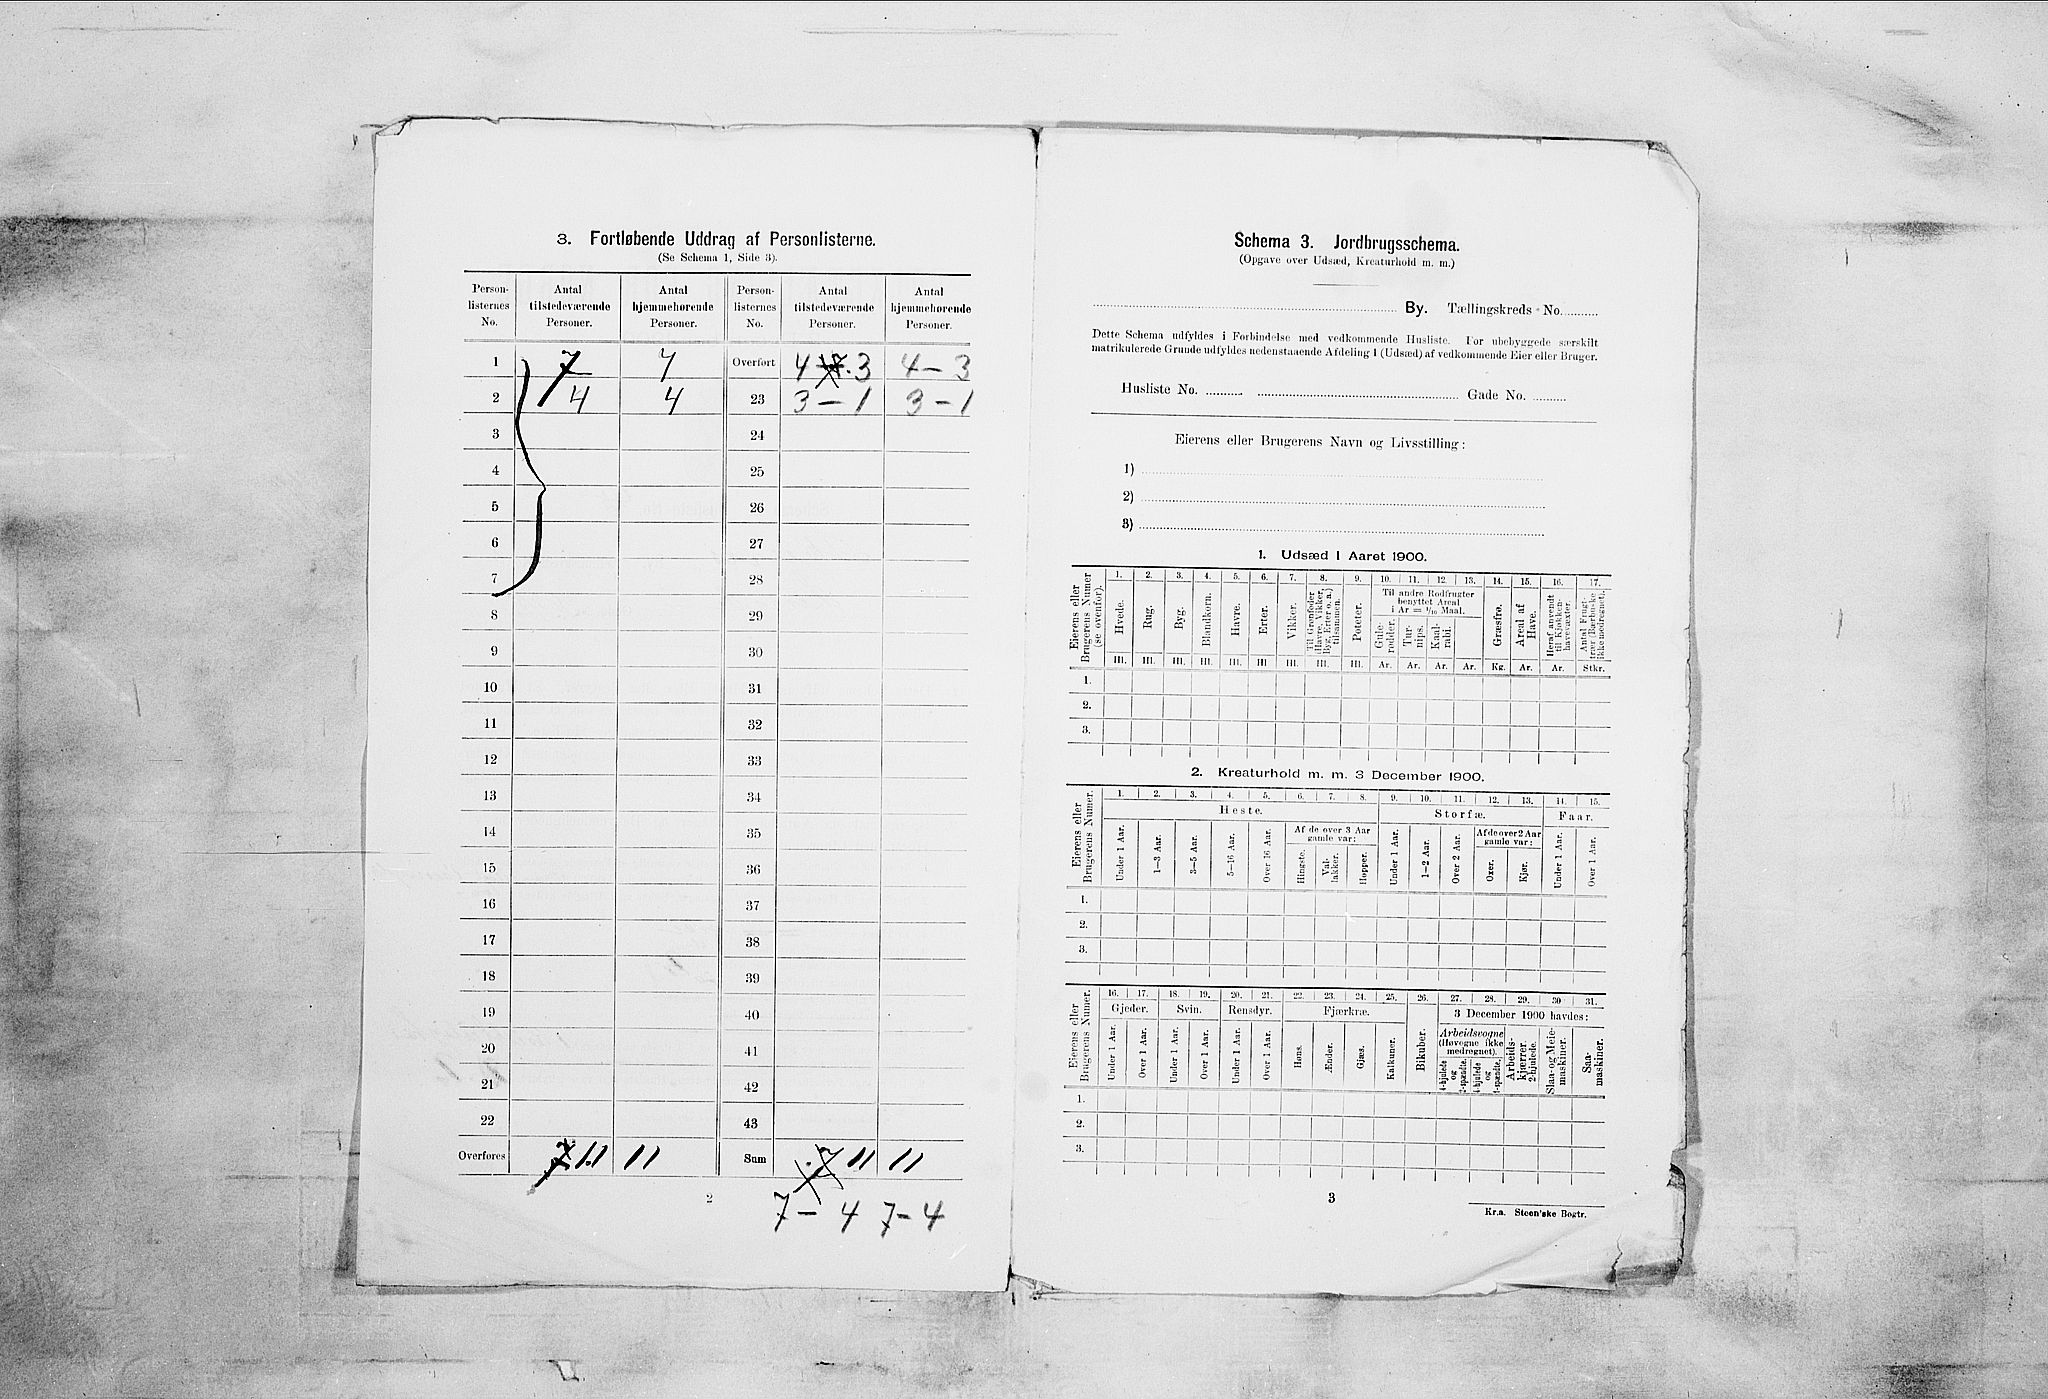 3. Fortløbende Uddrag af Personlisterne.
(Se Schema 1, Side 3).
Person-listernes No. | Antal tilstedeværende Personer. | Antal hjemmehørende Personer. | Person-listernes No. | Antal tilstedeværende Personer. | Antal hjemmehørende Personer.
1 7 7 Overført 4 3 4 – 3
2 4 4 23 3 – 1 3 – 1
3 24
4 25
5 26
6 27
7 28
8 29
9 30
10 31
11 32
12 33
13 34
14 35
15 36
16 37
17 38
18 39
19 40
20 41
21 42
22 43
Overføres 7 11 11 Sum 7 11 11
7 – 4 7 – 4
2
Schema 3. Jordbrugsschema.
(Opgave over Udsæd, Kreaturhold m. m.)
By. Tællingskreds No.
Dette Schema udfyldes i Forbindelse med vedkommende Husliste. For ubebyggede særskilt
matrikulerede Grunde udfyldes nedenstaaende Afdeling 1 (Udsæd) af vedkommende Eier eller Bruger.
Husliste No. Gade No.
Eierens eller Brugerens Navn og Livsstilling:
1)
2)
3)
1. Udsæd i Aaret 1900.
Eierens eller Brugerens Numer (se ovenfor).
1. 2. 3. 4. 5. 6. 7. 8. 9. 10. 11. 12. 13. 14. 15. 16. 17.
Til andre Rodfrugter benyttet Areal i Ar = 1/10 Maal.
Hvede. Rug. Byg. Blandkorn. Havre. Erter. Vikker. Til Grønfoder (Havre, Vikker, Byg, Erter o. a.) tilsammen. Poteter. Gulerødder. Turnips. Kaalrabi. Græsfrø. Areal af Have. Heraf anvendt til Kjøkkenhavevæxter. Antal Frugttrær (Bærbuske ikke medregnet).
Hl. Hl. Hl. Hl. Hl. Hl Hl. Hl. Hl. Ar. Ar. Ar. Ar. Kg. Ar. Ar. Stkr.
1.
2.
3.
2. Kreaturhold m. m. 3 December 1900.
Eierens eller Brugerens Numer.
1. 2. 3. 4. 5. 6. 7. 8. 9. 10. 11. 12. 13. 14. 15.
Heste. Storfæ. Faar.
Af de over 3 Aar gamle var: Af de over 2 Aar gamle var:
Under 1 Aar. 1–3 Aar. 3–5 Aar. 5–16 Aar. Over 16 Aar. Hingste. Vallakker. Hopper. Under 1 Aar. 1–2 Aar. Over 2 Aar. Oxer. Kjør. Under 1 Aar. Over 1 Aar.
1.
2.
3.
Eierens eller Brugerens Numer.
16. 17. 18. 19. 20. 21. 22. 23. 24. 25. 26. 27. 28. 29. 30 31.
Gjeder. Svin. Rensdyr. Fjærkræ. 3 December 1900 havdes:
Arbeidsvogne (Høvogne ikke medregnet).
Under 1 Aar. Over 1 Aar. Under 1 Aar. Over 1 Aar. Under 1 Aar. Over 1 Aar. Høns. Ænder. Gjæs. Kalkuner. Bikuber. 4-hjulede og 2-spændte. 4-hjulede og 1-spændte. Arbeidskjærrer. 2-hjulede. Slaa- og Meiemaskiner. Saamaskiner.
1.
2.
3.
3
Kr.a. Steen'ske Bogtr.